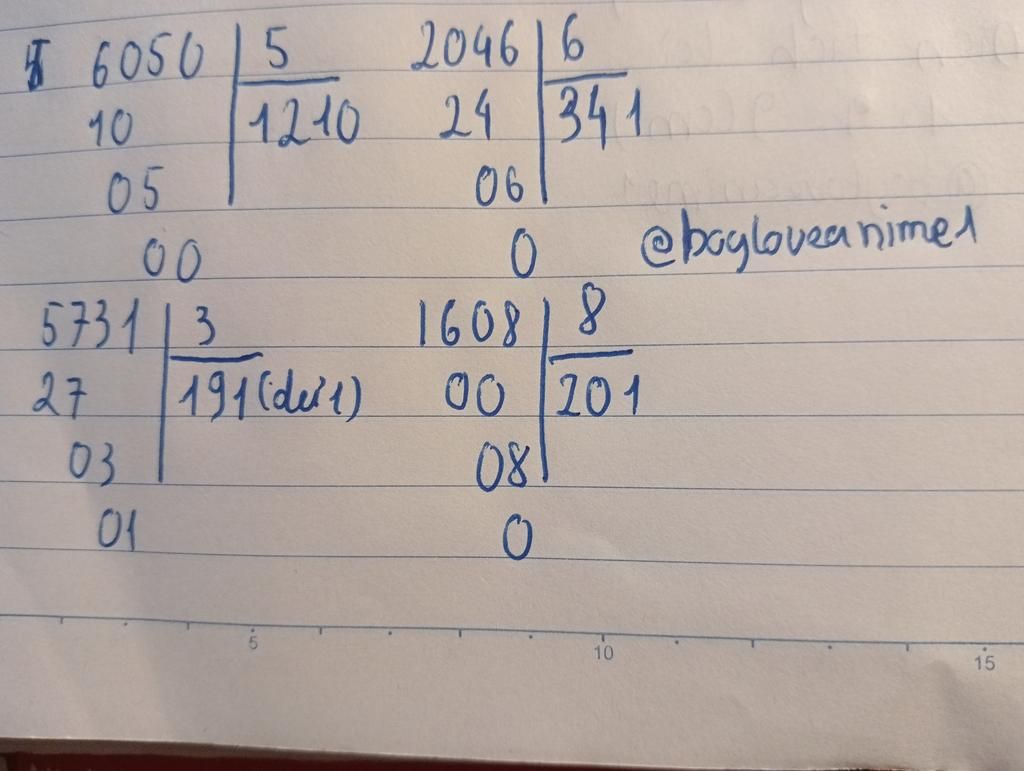 6050 5 2046 6
10 1210 24 341
05 06
00 0 @bogloveanime1
5731 3 1608 8
27 191 (dư 1) 00 201
03 08
01 0
5 10 15